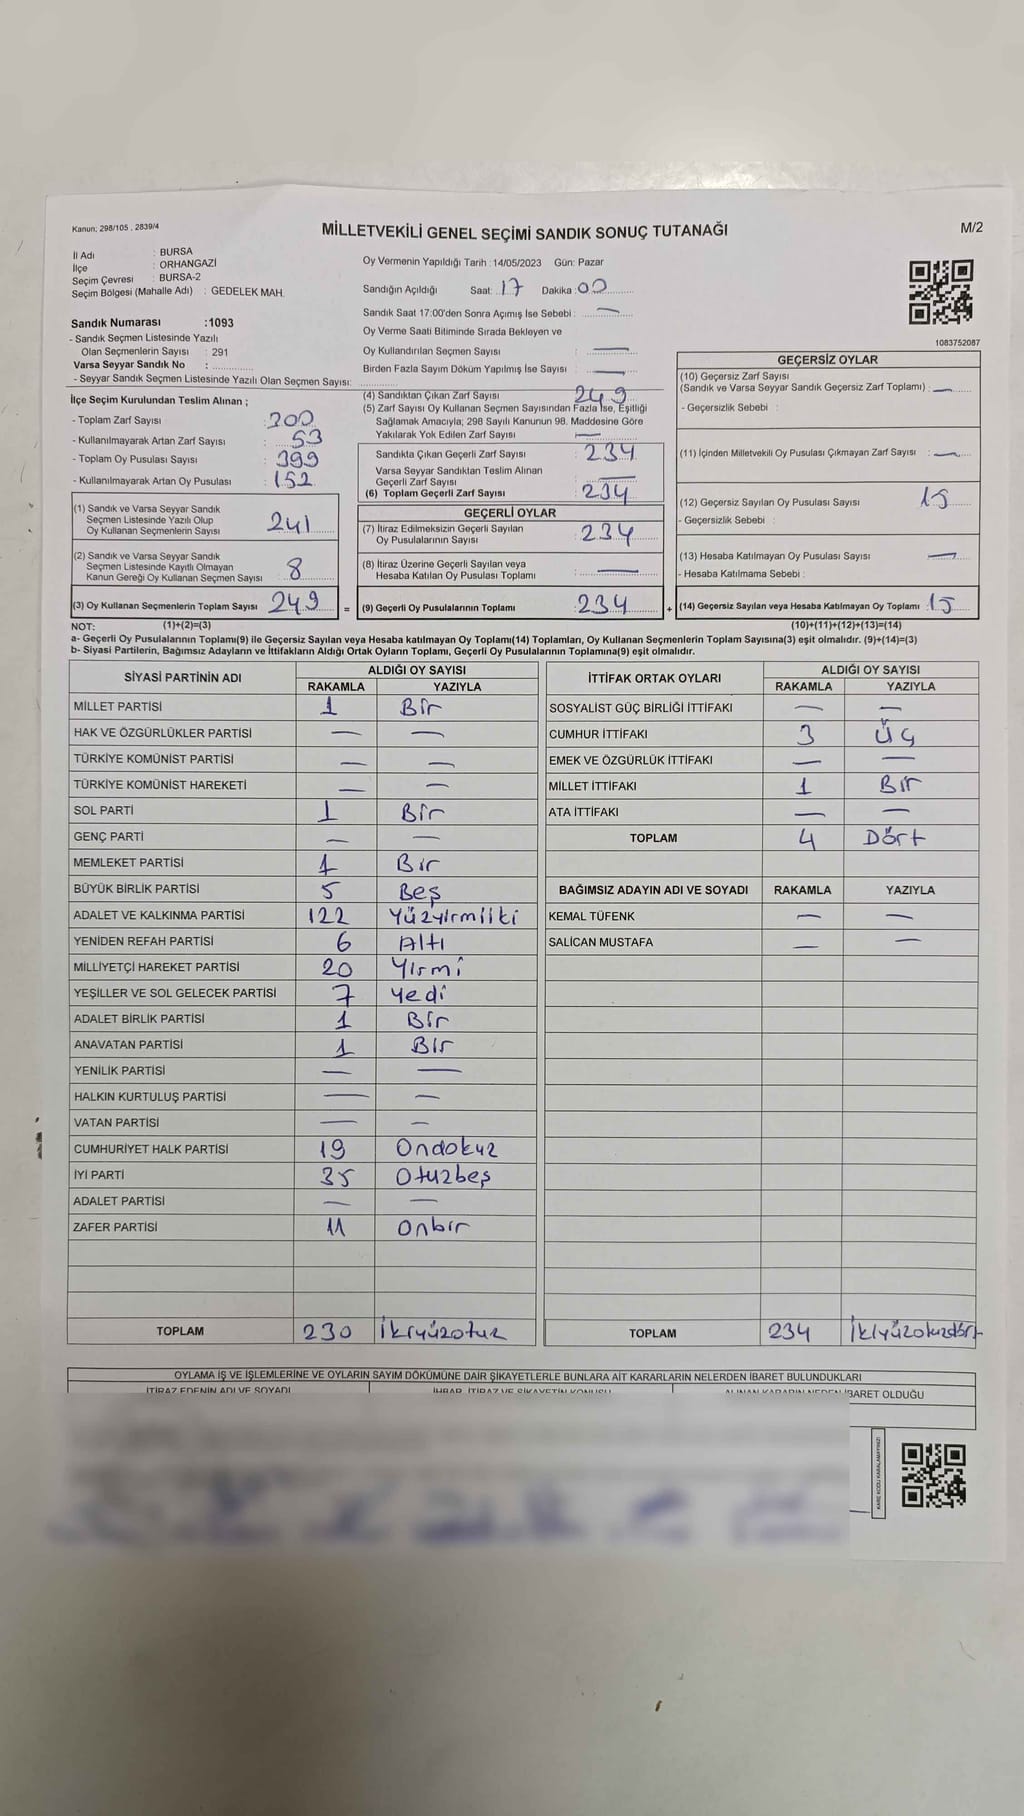 Kanun; 298/105 , 2839/4
MİLLETVEKİLİ GENEL SEÇİMİ SANDIK SONUÇ TUTANAĞI
M/2
İl Adı : BURSA
İlçe : ORHANGAZİ
Seçim Çevresi : BURSA-2
Seçim Bölgesi (Mahalle Adı) : GEDELEK MAH.
Oy Vermenin Yapıldığı Tarih :14/05/2023 Gün: Pazar
Sandığın Açıldığı Saat: 17 Dakika : 00
Sandık Saat 17:00'den Sonra Açımış İse Sebebi : —
Oy Verme Saati Bitiminde Sırada Bekleyen ve
Oy Kullandırılan Seçmen Sayısı : —
Birden Fazla Sayım Döküm Yapılmış İse Sayısı : —
Sandık Numarası :1093
- Sandık Seçmen Listesinde Yazılı
Olan Seçmenlerin Sayısı : 291
Varsa Seyyar Sandık No :
- Seyyar Sandık Seçmen Listesinde Yazılı Olan Seçmen Sayısı:
1083752087
İlçe Seçim Kurulundan Teslim Alınan ;
- Toplam Zarf Sayısı : 300
- Kullanılmayarak Artan Zarf Sayısı : 53
- Toplam Oy Pusulası Sayısı : 399
- Kullanılmayarak Artan Oy Pusulası : 152
(1) Sandık ve Varsa Seyyar Sandık
Seçmen Listesinde Yazılı Olup
Oy Kullanan Seçmenlerin Sayısı 241
(2) Sandık ve Varsa Seyyar Sandık
Seçmen Listesinde Kayıtlı Olmayan
Kanun Gereği Oy Kullanan Seçmen Sayısı 8
(3) Oy Kullanan Seçmenlerin Toplam Sayısı 249 =
(4) Sandıktan Çıkan Zarf Sayısı : 249
(5) Zarf Sayısı Oy Kullanan Seçmen Sayısından Fazla İse, Eşitliği
Sağlamak Amacıyla; 298 Sayılı Kanunun 98. Maddesine Göre
Yakılarak Yok Edilen Zarf Sayısı : —
Sandıkta Çıkan Geçerli Zarf Sayısı : 234
Varsa Seyyar Sandıktan Teslim Alınan
Geçerli Zarf Sayısı : —
(6) Toplam Geçerli Zarf Sayısı : 234
GEÇERLİ OYLAR
(7) İtiraz Edilmeksizin Geçerli Sayılan
Oy Pusulalarının Sayısı : 234
(8) İtiraz Üzerine Geçerli Sayılan veya
Hesaba Katılan Oy Pusulası Toplamı : —
(9) Geçerli Oy Pusulalarının Toplamı : 234 +
GEÇERSİZ OYLAR
(10) Geçersiz Zarf Sayısı
(Sandık ve Varsa Seyyar Sandık Geçersiz Zarf Toplamı) : —
- Geçersizlik Sebebi :
(11) İçinden Milletvekili Oy Pusulası Çıkmayan Zarf Sayısı : —
(12) Geçersiz Sayılan Oy Pusulası Sayısı 15
- Geçersizlik Sebebi :
(13) Hesaba Katılmayan Oy Pusulası Sayısı : —
- Hesaba Katılmama Sebebi :
(14) Geçersiz Sayılan veya Hesaba Katılmayan Oy Toplamı : 15
NOT: (1)+(2)=(3) (10)+(11)+(12)+(13)=(14)
a- Geçerli Oy Pusulalarının Toplamı(9) ile Geçersiz Sayılan veya Hesaba katılmayan Oy Toplamı(14) Toplamları, Oy Kullanan Seçmenlerin Toplam Sayısına(3) eşit olmalıdır. (9)+(14)=(3)
b- Siyasi Partilerin, Bağımsız Adayların ve İttifakların Aldığı Ortak Oyların Toplamı, Geçerli Oy Pusulalarının Toplamına(9) eşit olmalıdır.
SİYASİ PARTİNİN ADI ALDIĞI OY SAYISI
RAKAMLA YAZIYLA
MİLLET PARTİSİ 1 Bir
HAK VE ÖZGÜRLÜKLER PARTİSİ — —
TÜRKİYE KOMÜNİST PARTİSİ — —
TÜRKİYE KOMÜNİST HAREKETİ — —
SOL PARTİ 1 Bir
GENÇ PARTİ — —
MEMLEKET PARTİSİ 1 Bir
BÜYÜK BİRLİK PARTİSİ 5 Beş
ADALET VE KALKINMA PARTİSİ 122 Yüzyirmiiki
YENİDEN REFAH PARTİSİ 6 Altı
MİLLİYETÇİ HAREKET PARTİSİ 20 Yirmi
YEŞİLLER VE SOL GELECEK PARTİSİ 7 Yedi
ADALET BİRLİK PARTİSİ 1 Bir
ANAVATAN PARTİSİ 1 Bir
YENİLİK PARTİSİ — —
HALKIN KURTULUŞ PARTİSİ — —
VATAN PARTİSİ — —
CUMHURİYET HALK PARTİSİ 19 Ondokuz
İYİ PARTİ 35 Otuzbeş
ADALET PARTİSİ — —
ZAFER PARTİSİ 11 Onbir
TOPLAM 230 İkiyüzotuz
İTTİFAK ORTAK OYLARI ALDIĞI OY SAYISI
RAKAMLA YAZIYLA
SOSYALİST GÜÇ BİRLİĞİ İTTİFAKI — —
CUMHUR İTTİFAKI 3 Üç
EMEK VE ÖZGÜRLÜK İTTİFAKI — —
MİLLET İTTİFAKI 1 Bir
ATA İTTİFAKI — —
TOPLAM 4 Dört
BAĞIMSIZ ADAYIN ADI VE SOYADI RAKAMLA YAZIYLA
KEMAL TÜFENK — —
SALİCAN MUSTAFA — —
TOPLAM 234 İkiyüzotuzdört
OYLAMA İŞ VE İŞLEMLERİNE VE OYLARIN SAYIM DÖKÜMÜNE DAİR ŞİKAYETLERLE BUNLARA AİT KARARLARIN NELERDEN İBARET BULUNDUKLARI
İTİRAZ EDENİN ADI VE SOYADI İHBAR, İTİRAZ VE ŞİKAYETİN KONUSU ALINAN KARARIN NEDEN İBARET OLDUĞU
KARE KODU KARALAMAYINIZ